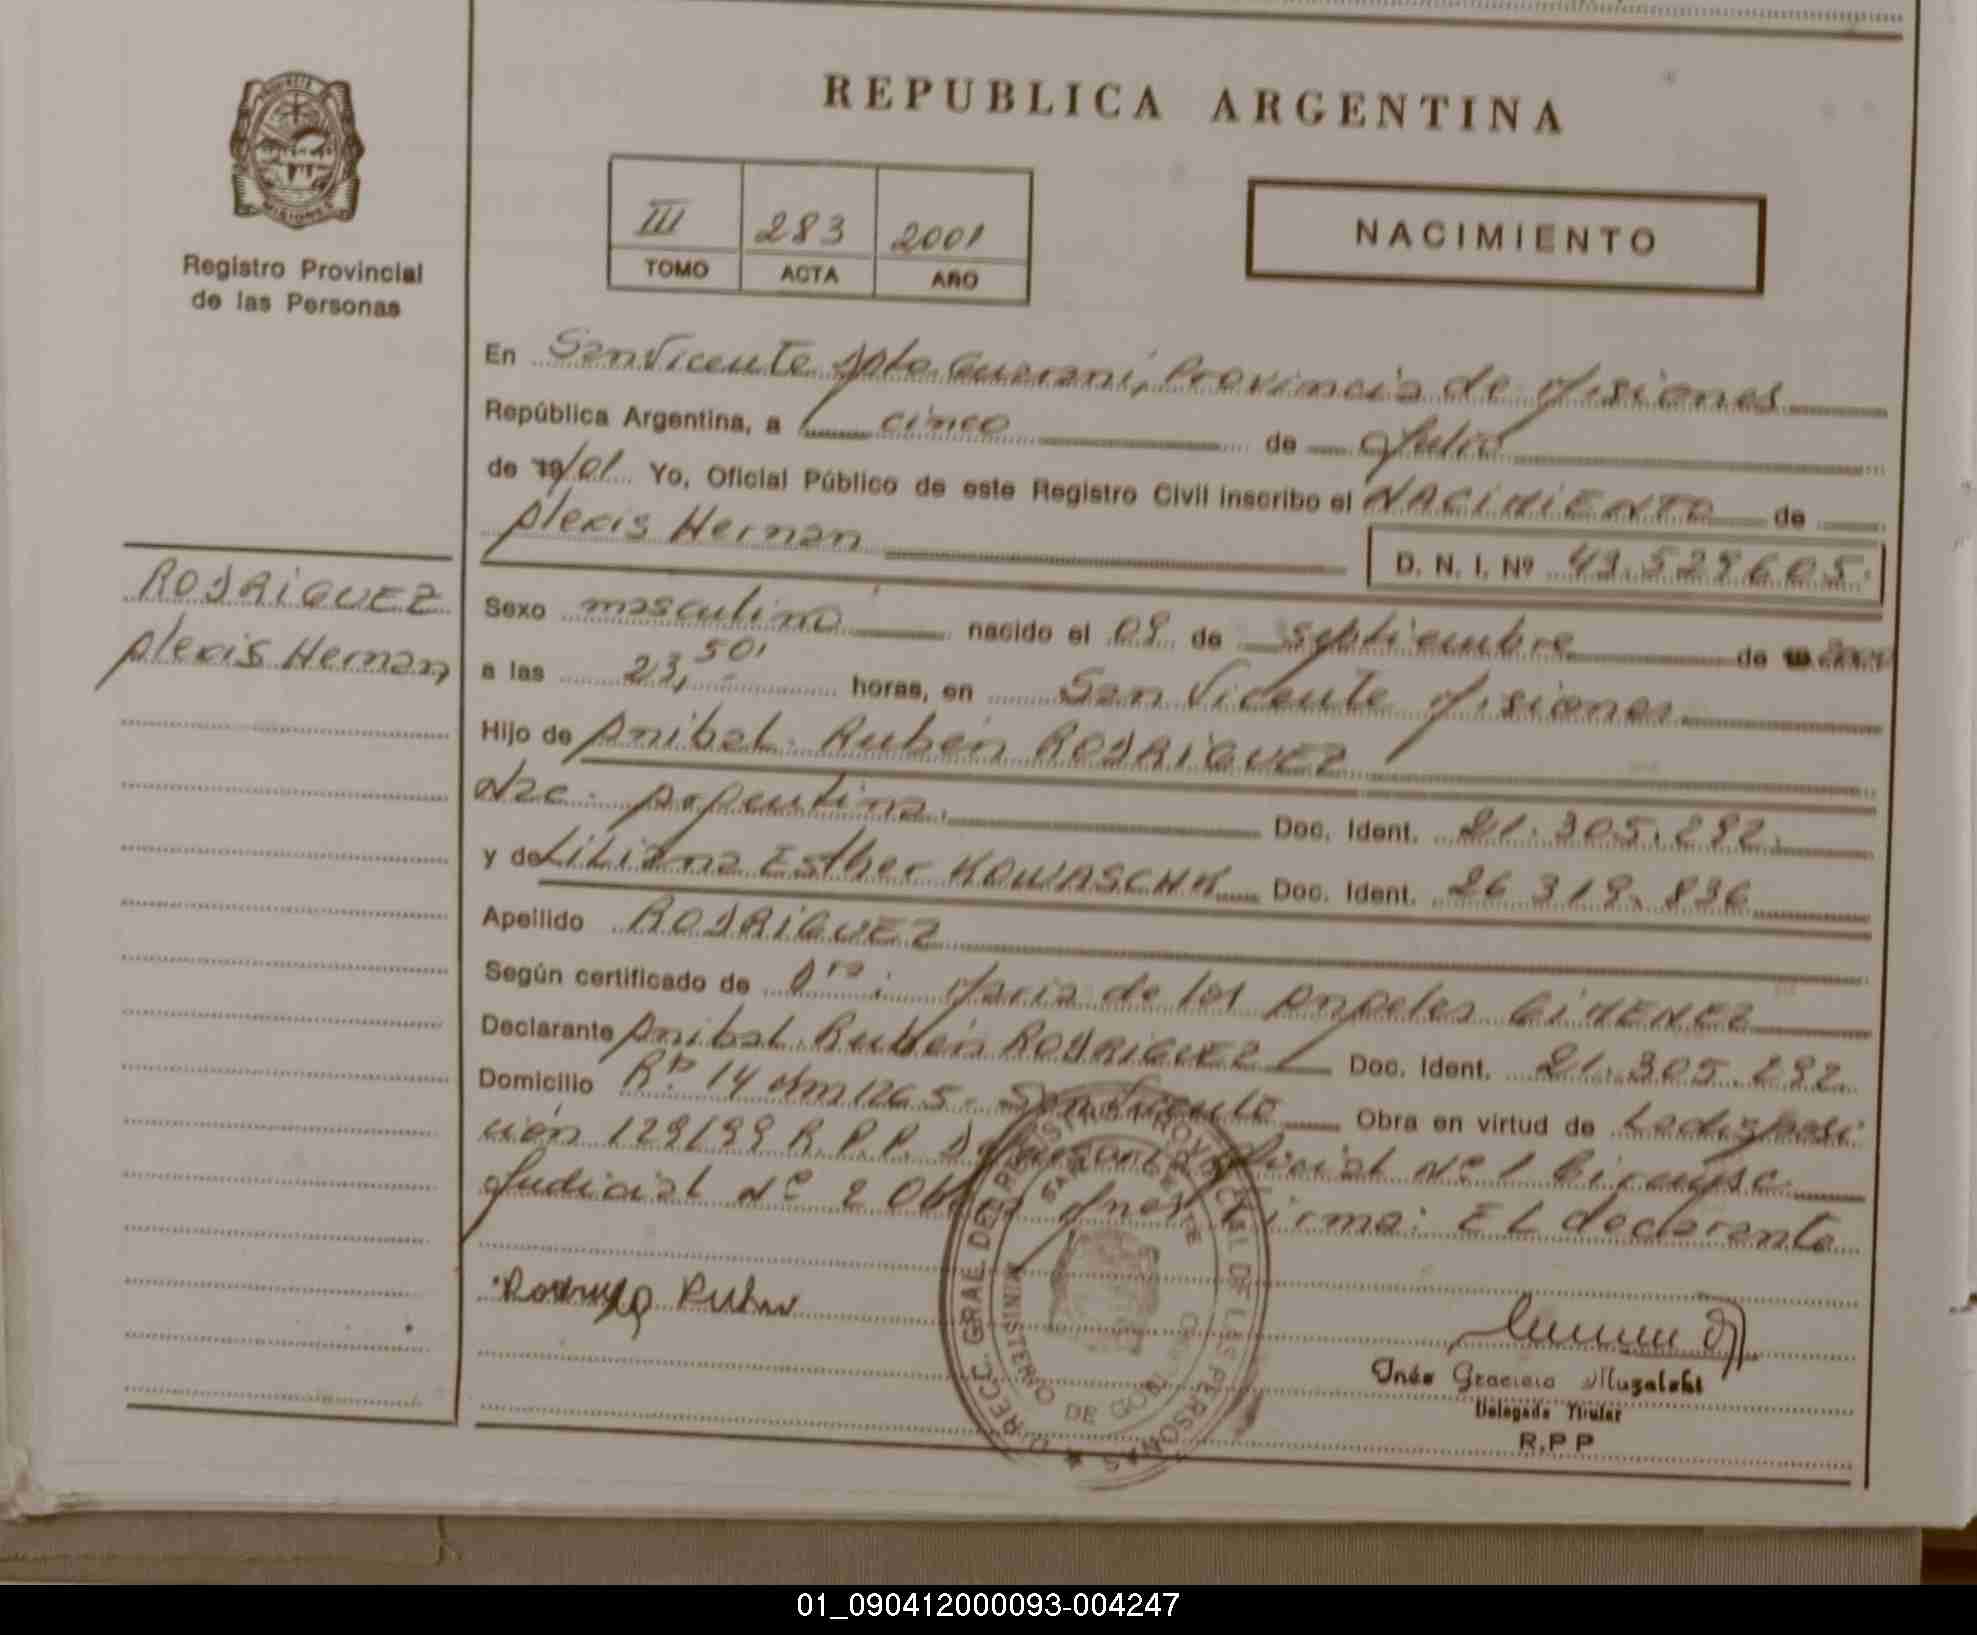 REPUBLICA ARGENTINA
PROVINCIA
MISIONES
Registro Provincial
de las Personas
III 283 2001
TOMO ACTA AÑO
NACIMIENTO
En San Vicente Dpto Guarani, Provincia de Misiones
República Argentina, a cinco de Julio
de 19/01 Yo, Oficial Público de este Registro Civil inscribo el NACIMIENTO de
Alexis Hernan
D. N. I. Nº 43.529605.
RODRIGUEZ
Alexis Hernan
Sexo masculino nacido el 09 de septiembre de 19
a las 23,50, horas, en San Vicente Misiones
Hijo de Anibal Rubén RODRIGUEZ
Nac. Argentina. Doc. Ident. 21.305.292.
y de Liliana Esther KOWASCHK Doc. Ident. 26 319. 836
Apellido RODRIGUEZ
Según certificado de Dra: Maria de los Angeles GIMENEZ
Declarante Anibal Rubén RODRIGUEZ Doc. Ident. 21.305.292.
Domicilio Rta 14 Km 1265- San Vicente Obra en virtud de La disposi
ción 129/99 R.P.P. Judicial Nº 1 Circunsc.
Judicial Nº 2 firma: EL declarante
Rodriguez Ruben
DIRECC. GRAL DEL REGISTRO PROVINCIAL DE LAS PERSONAS
SAN VICENTE
MINISTERIO DE GOBIERNO
Inés Graciela Muzalski
Delegada Titular
R.P.P
01_090412000093-004247